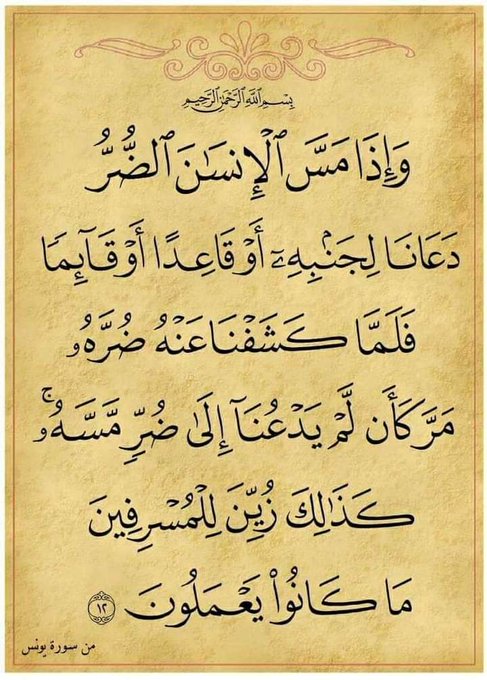 بِسْمِ ٱللَّهِ ٱلرَّحْمَٰنِ ٱلرَّحِيمِ
وَإِذَا مَسَّ ٱلْإِنسَٰنَ ٱلضُّرُّ
دَعَانَا لِجَنۢبِهِۦٓ أَوْ قَاعِدًا أَوْ قَآئِمًا
فَلَمَّا كَشَفْنَا عَنْهُ ضُرَّهُۥ
مَرَّ كَأَن لَّمْ يَدْعُنَآ إِلَىٰ ضُرٍّ مَّسَّهُۥ ۚ
كَذَٰلِكَ زُيِّنَ لِلْمُسْرِفِينَ
مَا كَانُوا۟ يَعْمَلُونَ ١٢
من سورة يونس